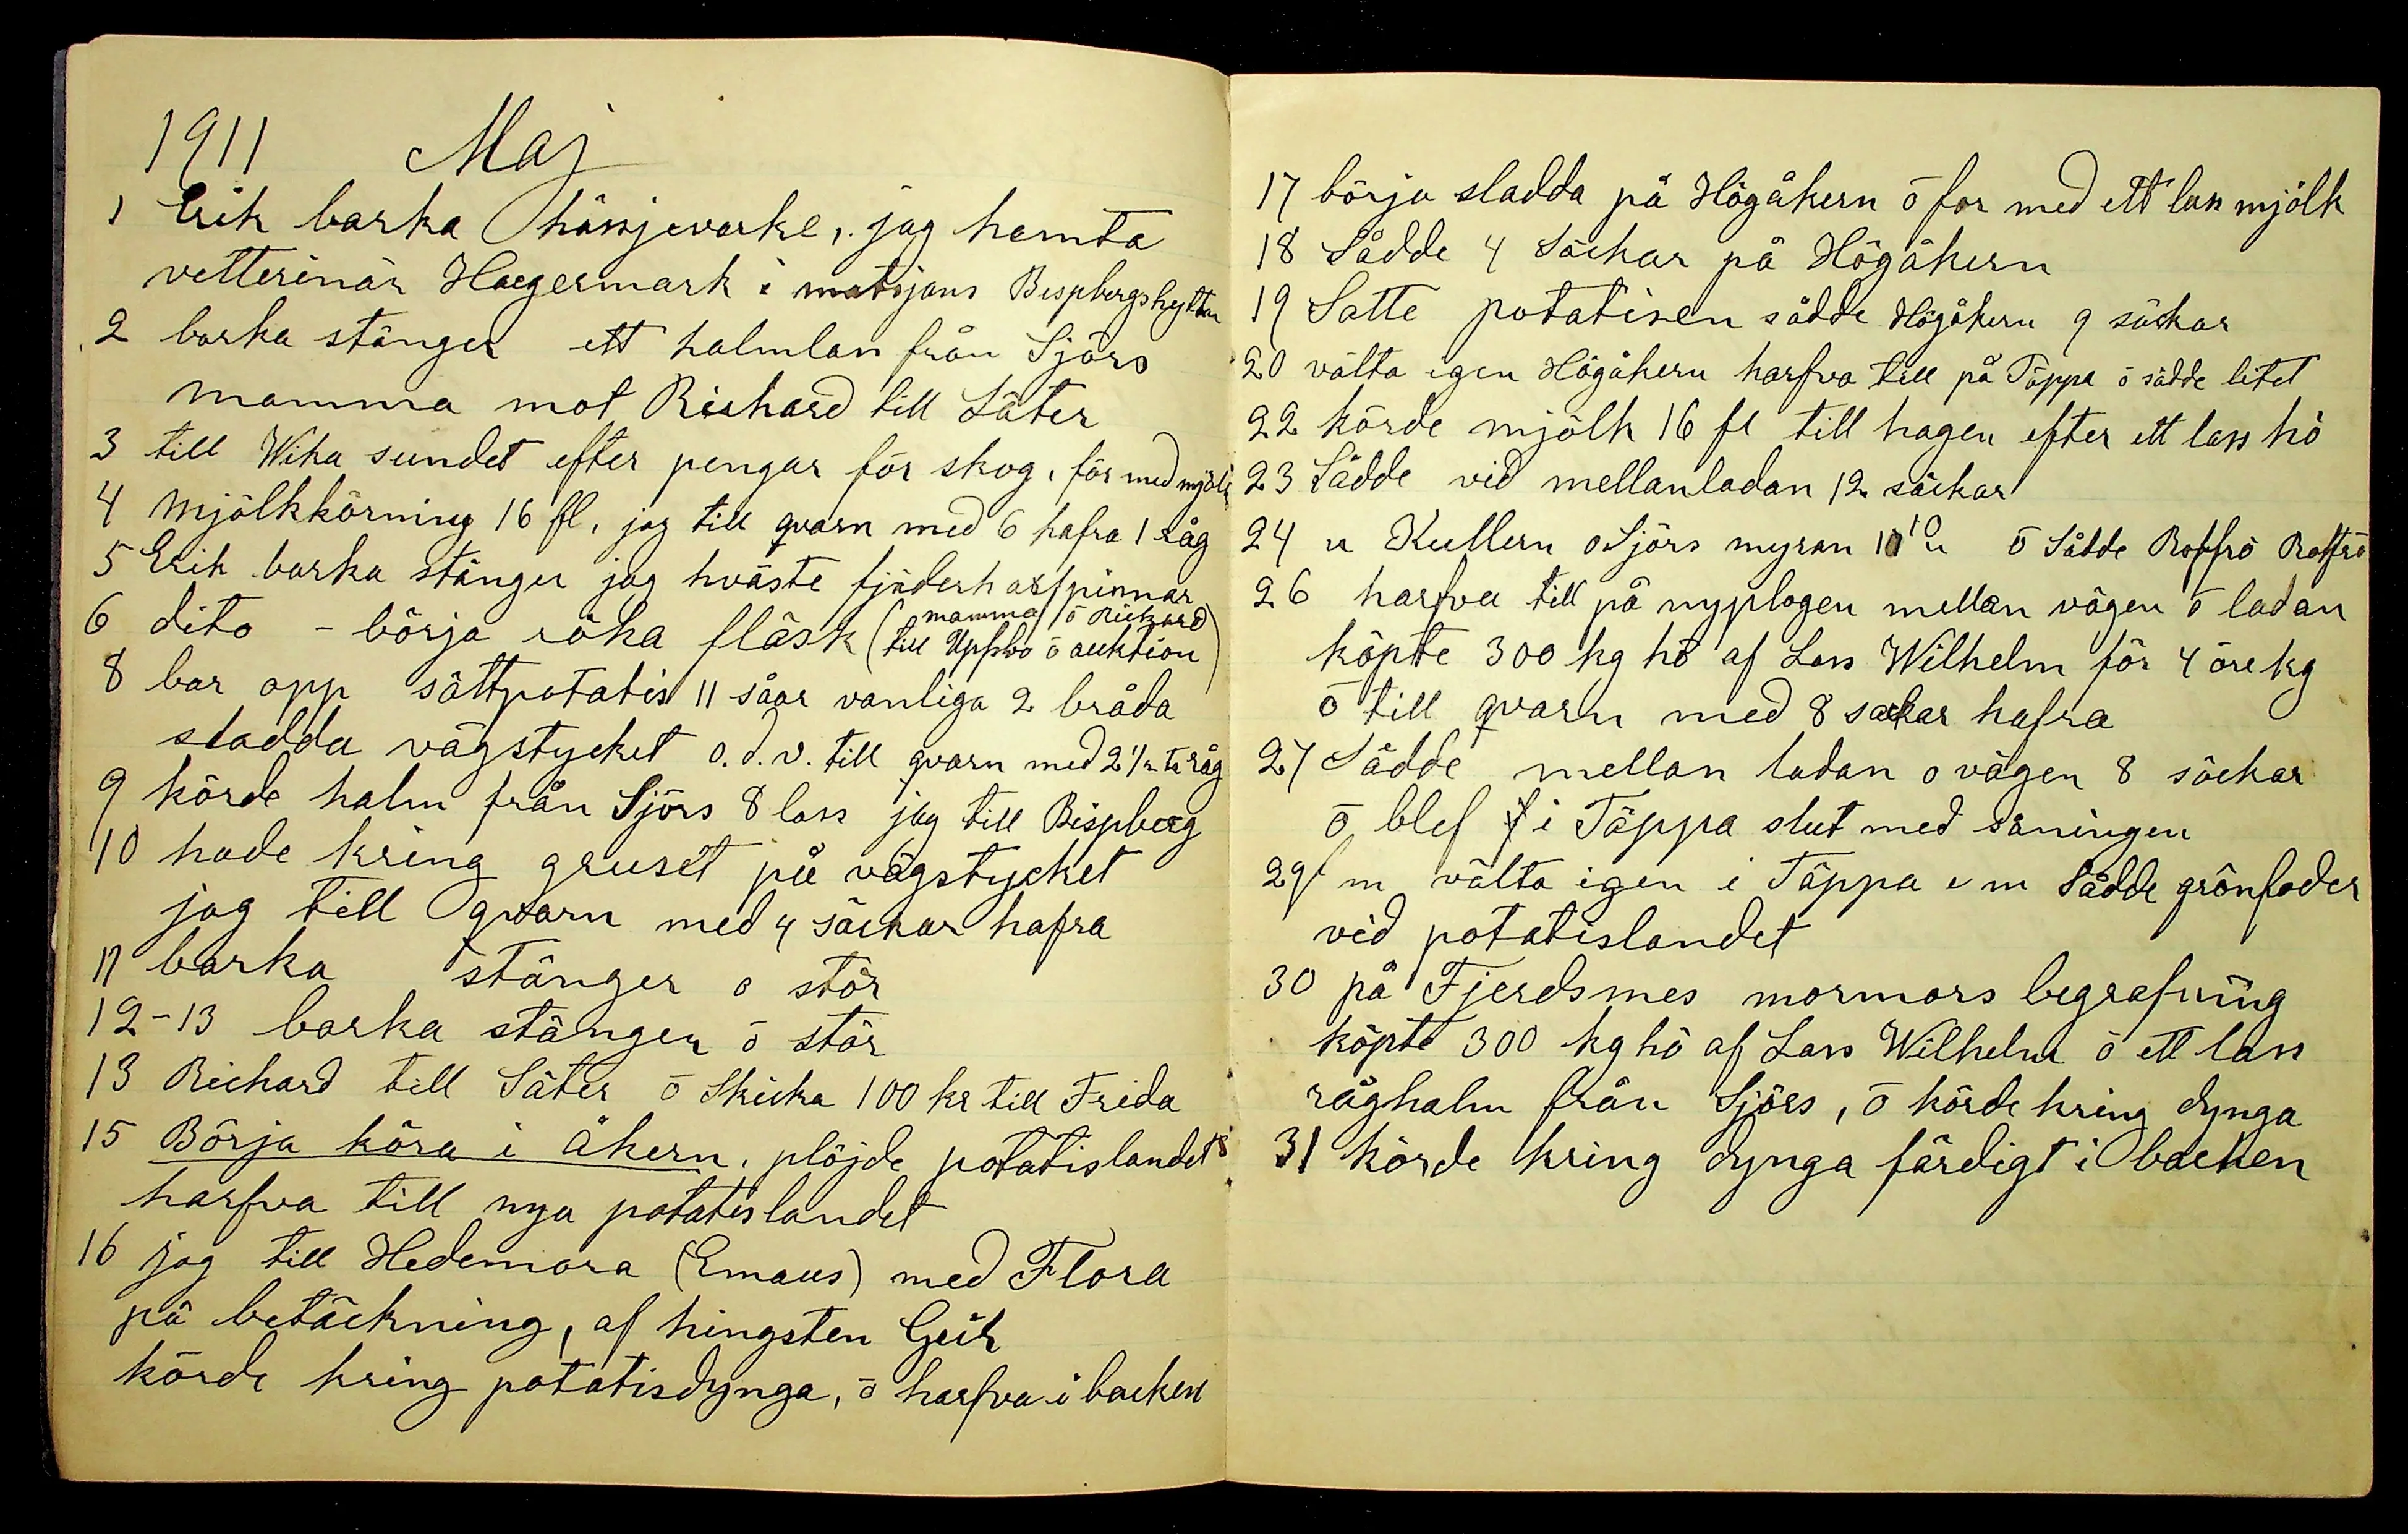 1911 Maj
1 Erik barka hässjevarke, jag hemta
vetterinär Haegermark i matsjans Bispbergshyttan
2 barka stänger ett halmlass från Sjörs
mamma mot Richard till Säter
3 till Wika sundet efter pengar för skog, för med mjölk
4 mjölkkörning 16 fl, jag till qvarn med 6 hafra 1 råg
5 Erik barka stänger jag hväste fjäderharfpinnar
6 dito - börja röka fläsk (mamma ō Richard
till Uppsbo ō auktion)
8 bar opp sättpotatis 11 såar vanliga 2 bråda
sladda vägstycket o.d.v. till qvarn med 2 1/2 t råg
9 körde halm från Sjörs 8 lass jag till Bispberg
10 hade kring gruset på vägstycket
jag till qvarn med 4 säckar hafra
11 barka stänger o stör
12-13 barka stänger ō stör
13 Richard till Säter ō Skicka 100 kr till Frida
15 Börja köra i åkern, plöjde potatislandet
harfva till nya potatislandet
16 jag till Hedemora (Emaus) med Flora
på betäckning, af hingsten Geir
körde kring potatisdynga, ō harfva i backen
17 börja sladda på Högåkern ō for med ett lass mjölk
18 Sådde 4 Säckar på Högåkern
19 Satte potatisen sådde Högåkern 9 säckar
20 välta igen Högåkern harfva till på Täppa ō sådde litet
22 körde mjölk 16 fl till hagen efter ett lass hö
23 Sådde vid mellanladan 12 säckar
24 u Kullern o Sjörs myran 10 u ō Sådde Roffrö Roffrö
26 harfva till på nyplogen mellan vägen ō ladan
köpte 300 kg hö af Lars Wilhelm för 4 öre kg
ō till qvarn med 8 sackar hafra
27 Sådde mellan ladan o vägen 8 säckar
ō blef i Täppa slut med såningen
29 f m välta igen i Täppa e m Sådde grönfoder
vid potatislandet
30 på Fjerdsmes mormors begrafning
köpte 300 kg hö af Lars Wilhelm ō ett lass
råghalm från Sjörs, ō körde kring dynga
31 körde kring dynga färdigt i backen